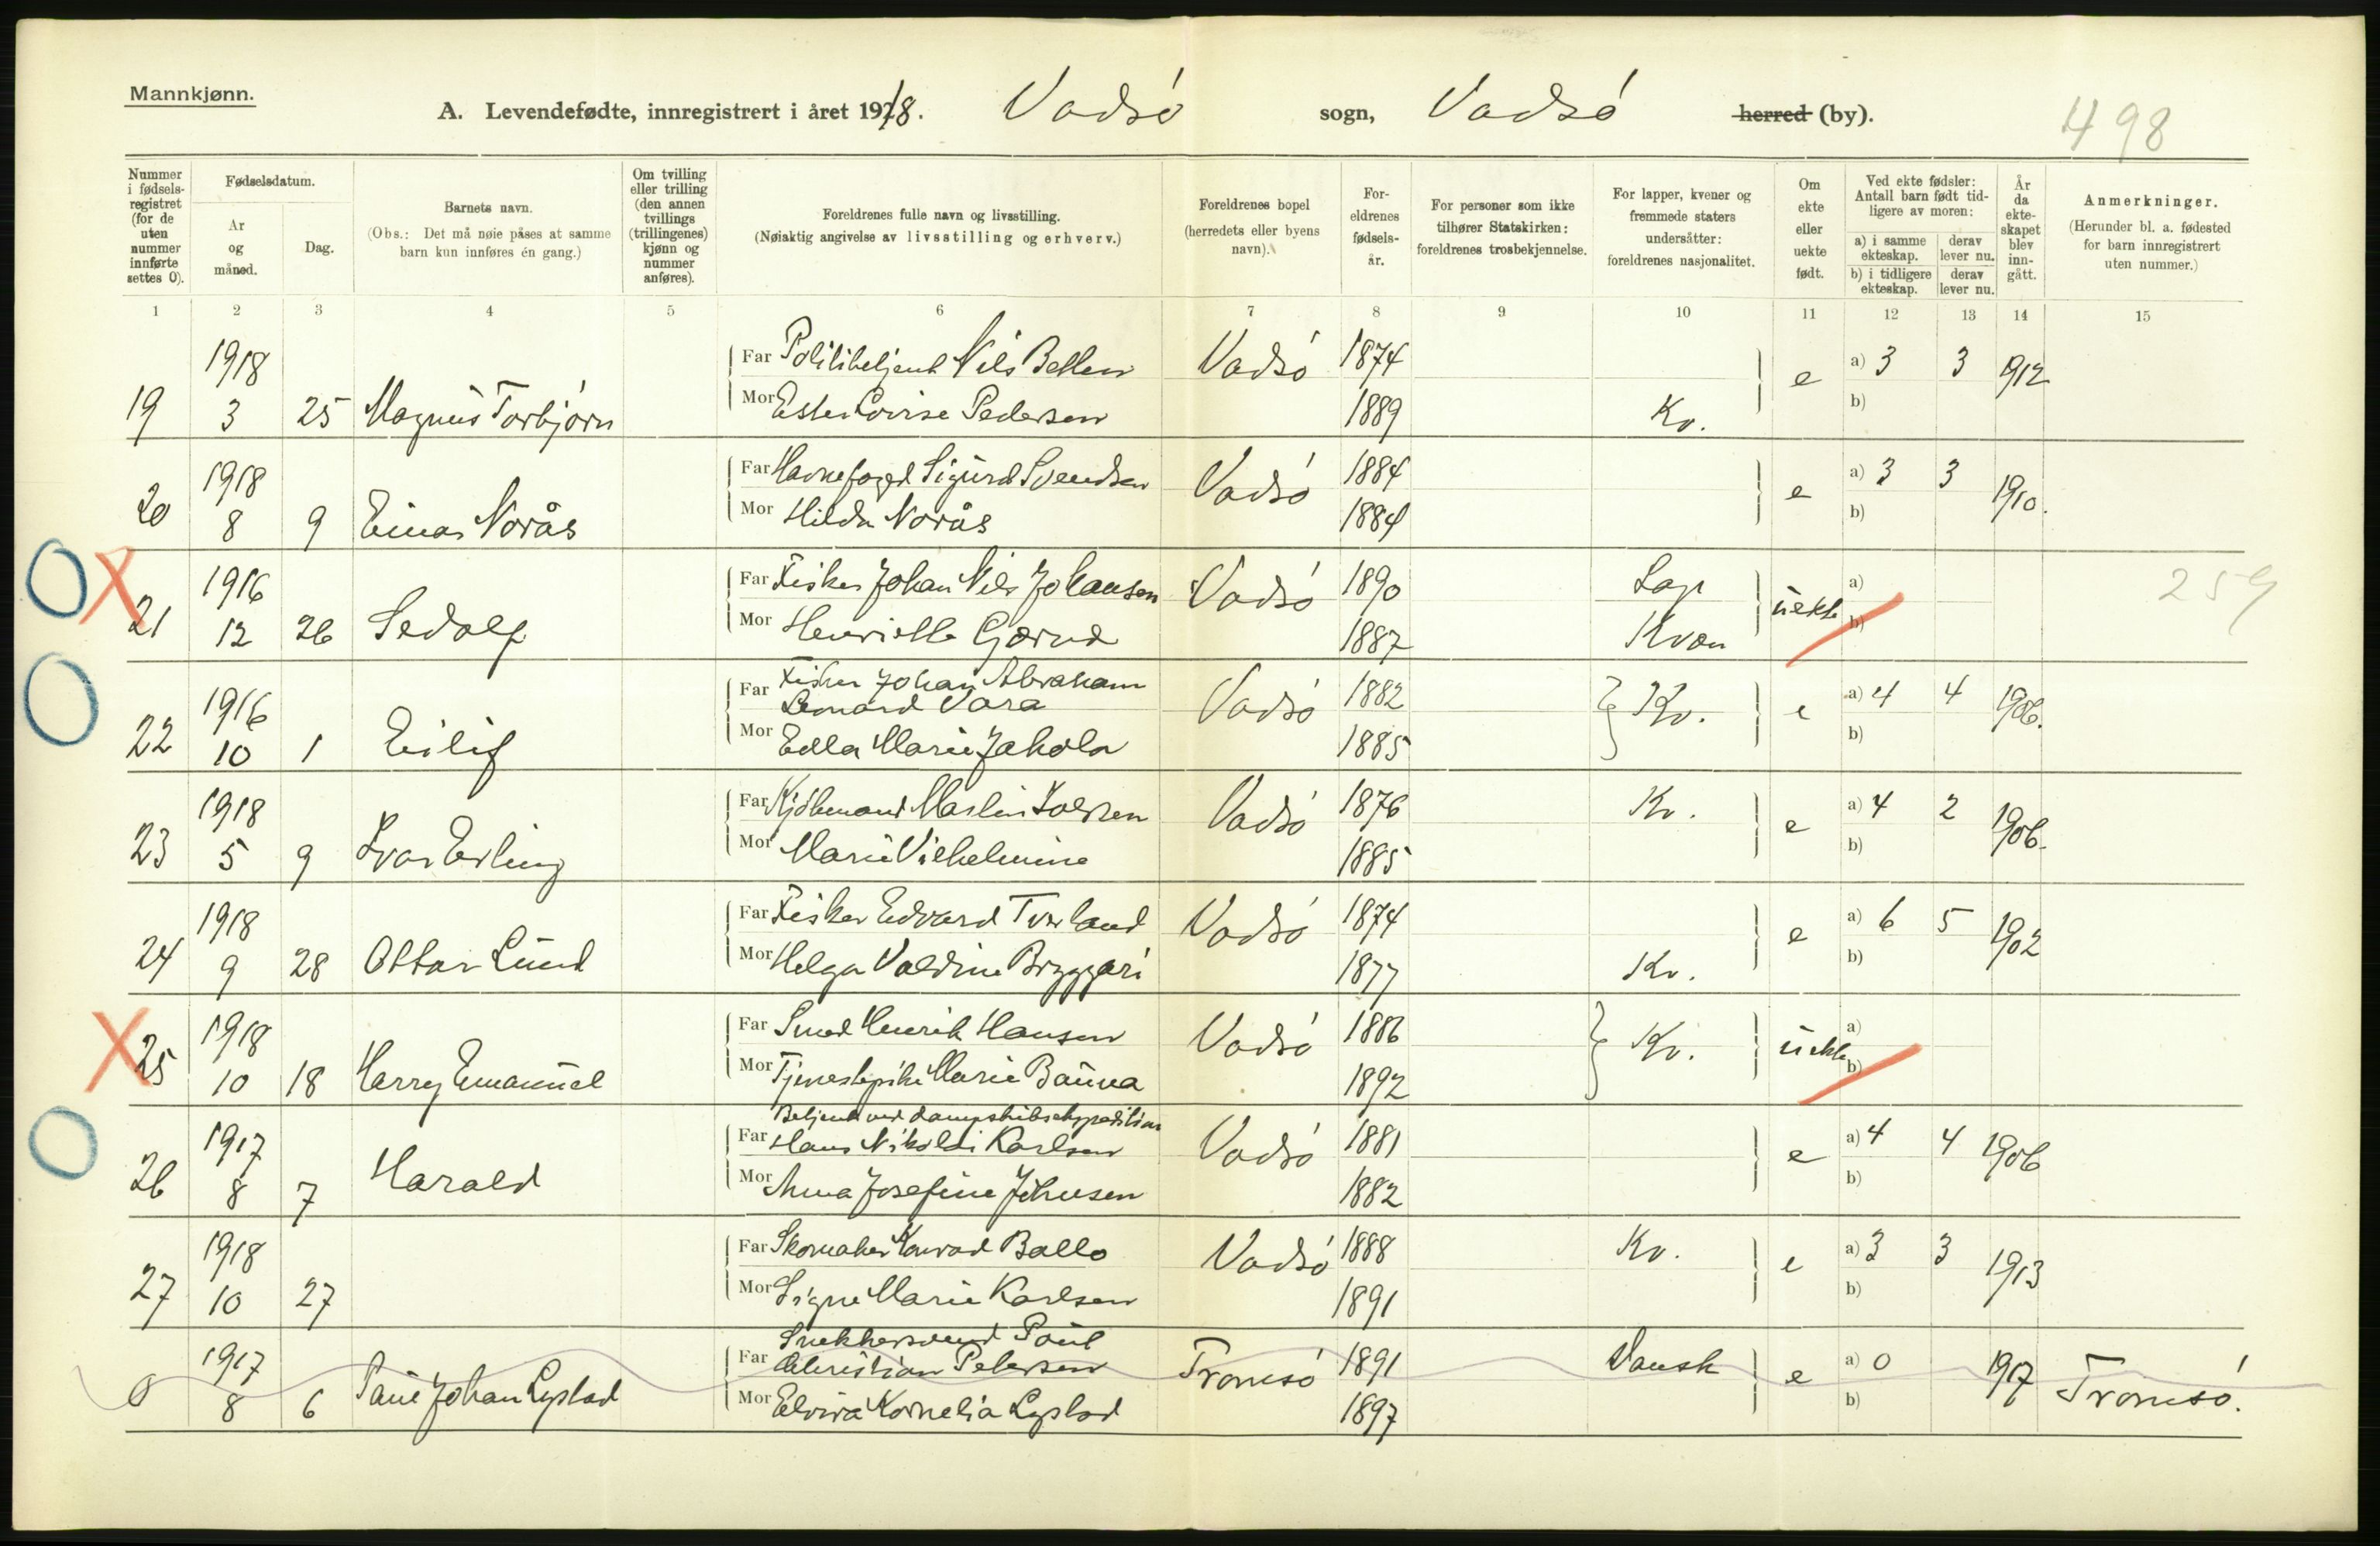 Mannkjønn.
A. Levendefødte, innregistrert i året 1918. Vadsö sogn, Vadsö herred (by).
498
Nummer i fødsels-registret (for de uten nummer innførte settes 0).
Fødselsdatum.
År og måned.
Dag.
Barnets navn.
(Obs.: Det må nøie påses at samme barn kun innføres én gang.)
Om tvilling eller trilling (den annen tvillings (trillingenes) kjønn og nummer anføres).
Foreldrenes fulle navn og livsstilling.
(Nøiaktig angivelse av livsstilling og erhverv.)
Foreldrenes bopel (herredets eller byens navn).
For-eldrenes fødsels-år.
For personer som ikke tilhører Statskirken: foreldrenes trosbekjennelse.
For lapper, kvener og fremmede staters undersåtter: foreldrenes nasjonalitet.
Om ekte eller uekte født.
Ved ekte fødsler: Antall barn født tid-ligere av moren:
a) i samme ekteskap. derav lever nu.
b) i tidligere ekteskap. derav lever nu.
År da ekte-skapet blev inn-gått.
Anmerkninger.
(Herunder bl. a. fødested for barn innregistrert uten nummer.)
1 2 3 4 5 6 7 8 9 10 11 12 13 14 15
1918 Far Politibetjent Nils Vadsö 1874 e a) 3 3 1912
19 3 25 Magnus Torbjørn Mor Ester Lovise Pedersen 1889 Kv. b)
1918 Far Havnefoged Sigurd Svendsen Vadsö 1884 e a) 3 3 1910.
20 8 9 Einar Norås Mor Hilda Norås 1884 b)
1916 Far Fisker Johan Nils Johansen Vadsö 1890 Lap uekte a) 259
21 12 26 Sedolf Mor Henriette 1887 Kvæn b)
1916 Far Fisker Johan Abraham Leonard Vara Vadsö 1882 Kv. e a) 4 4 1906.
22 10 1 Eilif Mor Edla Marie 1885 b)
1918 Far Kjöbmand Martin Vadsö 1876 Kv. e a) 4 2 1906.
23 5 9 Ivar Erling Mor Marie Vilhelmine 1885 b)
1918 Far Fisker Edvard Tverland Vadsö 1874 e a) 6 5 1902
24 9 28 Ottar Lund Mor Helga Valdine Bryggari 1877 Kv. b)
1918 Far Smed Henrik Hansen Vadsö 1886 Kv. uekte a)
25 10 18 Harry Emanuel Mor Tjenestepike Marie Bauna 1892 b)
1917 Far Betjent ved dampskibsekspedition Hans Nikolai Karlsen Vadsö 1881 e a) 4 4 1906
26 8 7 Harald Mor Anna Josefine Johnsen 1882 b)
1918 Far Skomaker Konrad Ballo Vadsö 1888 Kv. e a) 3 3 1913
27 10 27 Mor Signe Marie Karlsen 1891 b)
1917 Far Snekkersvend Paul Christian Petersen Tromsö 1891 Dansk e a) 0 1917 Tromsö.
0 8 6 Paul Johan Lystad Mor Elvira Kornelia Lystad 1897 b)